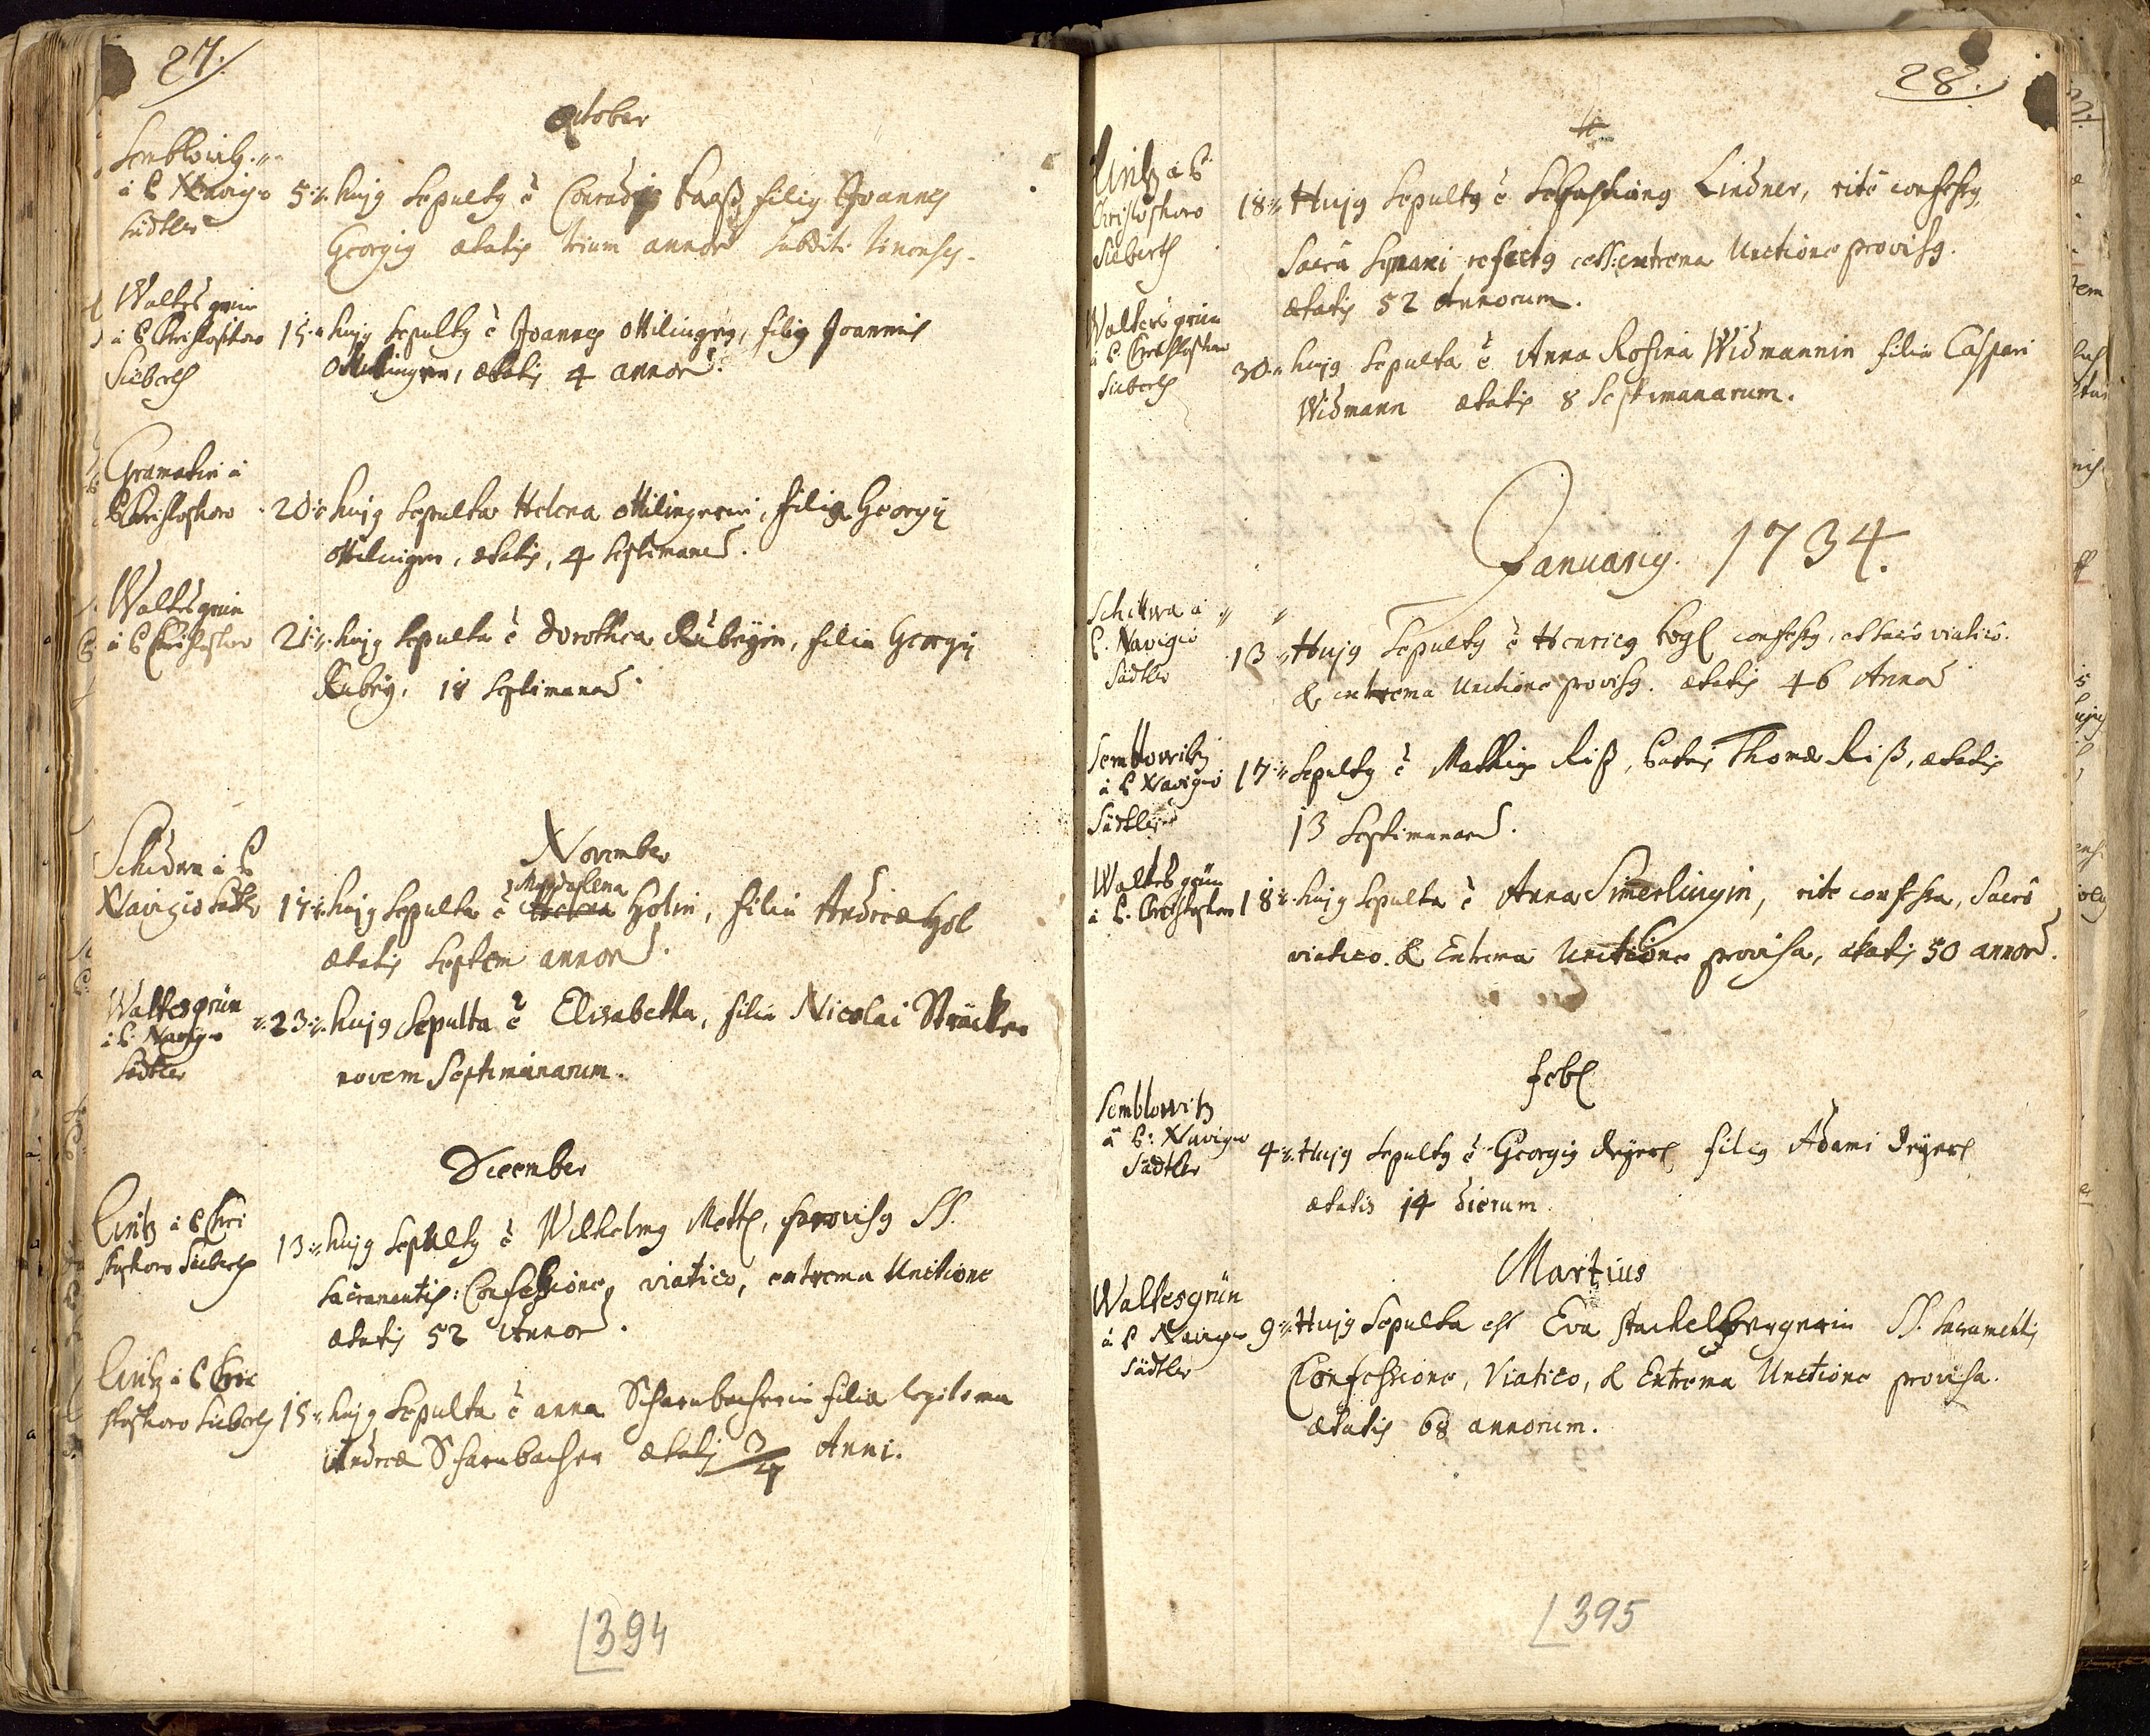 27.
October
Semblowitz
à P. Xavigio
Sädtler
5. hujg Sepultg ē Conradg filig Joannes
Georgig ætatis trium annor
Waltersgrün
à P. Christophoro
Sieberth
15. hujg Sepultg ē Joannes Ottilingrg, filig Joannis
Ottilingrn, ætatis 4 annor.
Gramatin à
P. Christophoro
20. hujg Sepulta Helena Ottilingerin, filia Georgÿ
Ottilinger, ætatis, 4 Septimanar.
Waltersgrün
à P. Christophoro
21. hujg Sepulta ē Dorothea Rubeÿin, filia Georgÿ
Rubeÿ, 18 Septimanar.
November
Schidwa à P.
Xavigio Sädtl
Magdalena
17. hujg Sepulta ē Helena Holin, filia Andreæ Hol
ætatis septem annor.
Waltesgrün
à P. Navigio
Sädtler
23. hujg Sepulta ē Elisabetha, filia Nicolai Sträcker
novem Septimanarum.
December
Linz à P. Chri
stophoro Sieberth
13. hujg Sepultg ē Wilhelmg Mottl, provisg SS.
Sacramentis: Confessione, viatico, extrema Unctione
ætatis 52 Annor.
Linz à P. Chri
stophoro Sieberth
15. hujg Sepulta ē anna Scharnbacherin filia legitema
Andreæ Scharnbacher ætatis 3/4 Anni.
394
28.
Linz à P.
Christophoro
Sieberth
18. Hujg Sepultg ē Sebastiang Lindner, rite confessg,
Sacra Synaxi refectg extrema Unctione provisg.
ætatis 52 Annorum.
Waltersgrün
à P. Christophoro
Sieberth
30. hujg Sepulta ē Anna Rosina Widmannin filia Caspari
Widmann ætatis 8 Septimanarum.
Januarig. 1734.
Schittwa à
P. Navigio
Sädtler
13. Hujg Sepultg ē Henricg Vogl confessg, et sacro viatico.
& extrema Unctione provisg. ætatis 46 Annor
Semblowitz
à P. Xavigio
Sädtler
17. Sepultg ē Mathig Riß, Patris Thomæ Riß, ætatis
13 Septimanar.
Waltersgrün
à P. Christophoro
18. hujg Sepulta ē Anna Simerlingin, rite confessa, Sacro
viatico. & Extrema Unctione provisa, ætatis 50 annor.
Feb
Semblowitz
à P. Xavigio
Sädtler
4. Hujg Sepultg ē Georgig Dÿerl filig Adami Dÿerl
ætatis 14 dierum.
Martius
Waltesgrün
à P. Navigio
Sädtler
9. Hujg Sepulta est Eva Stachelbergerin SS. Sacramentis
Confessione, Viatico, & Extrema Unctione provisa.
ætatis 68 annorum.
395